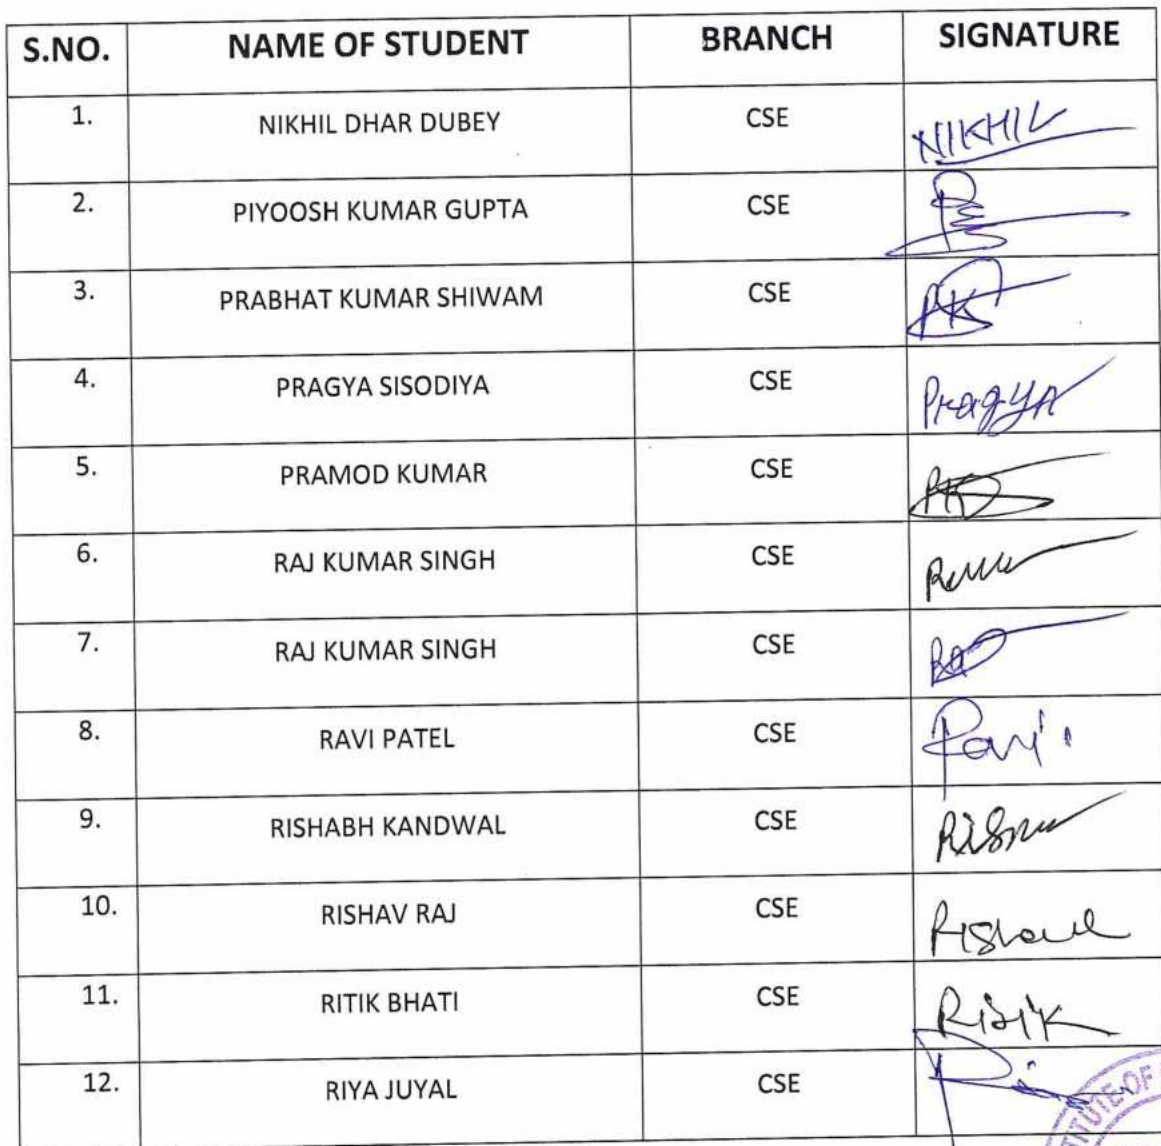 S.NO. NAME OF STUDENT BRANCH SIGNATURE
1. NIKHIL DHAR DUBEY CSE NIKHIL
2. PIYOOSH KUMAR GUPTA CSE
3. PRABHAT KUMAR SHIWAM CSE PK
4. PRAGYA SISODIYA CSE Pragya
5. PRAMOD KUMAR CSE PK
6. RAJ KUMAR SINGH CSE
7. RAJ KUMAR SINGH CSE
8. RAVI PATEL CSE Ravi
9. RISHABH KANDWAL CSE
10. RISHAV RAJ CSE
11. RITIK BHATI CSE Ritik
12. RIYA JUYAL CSE